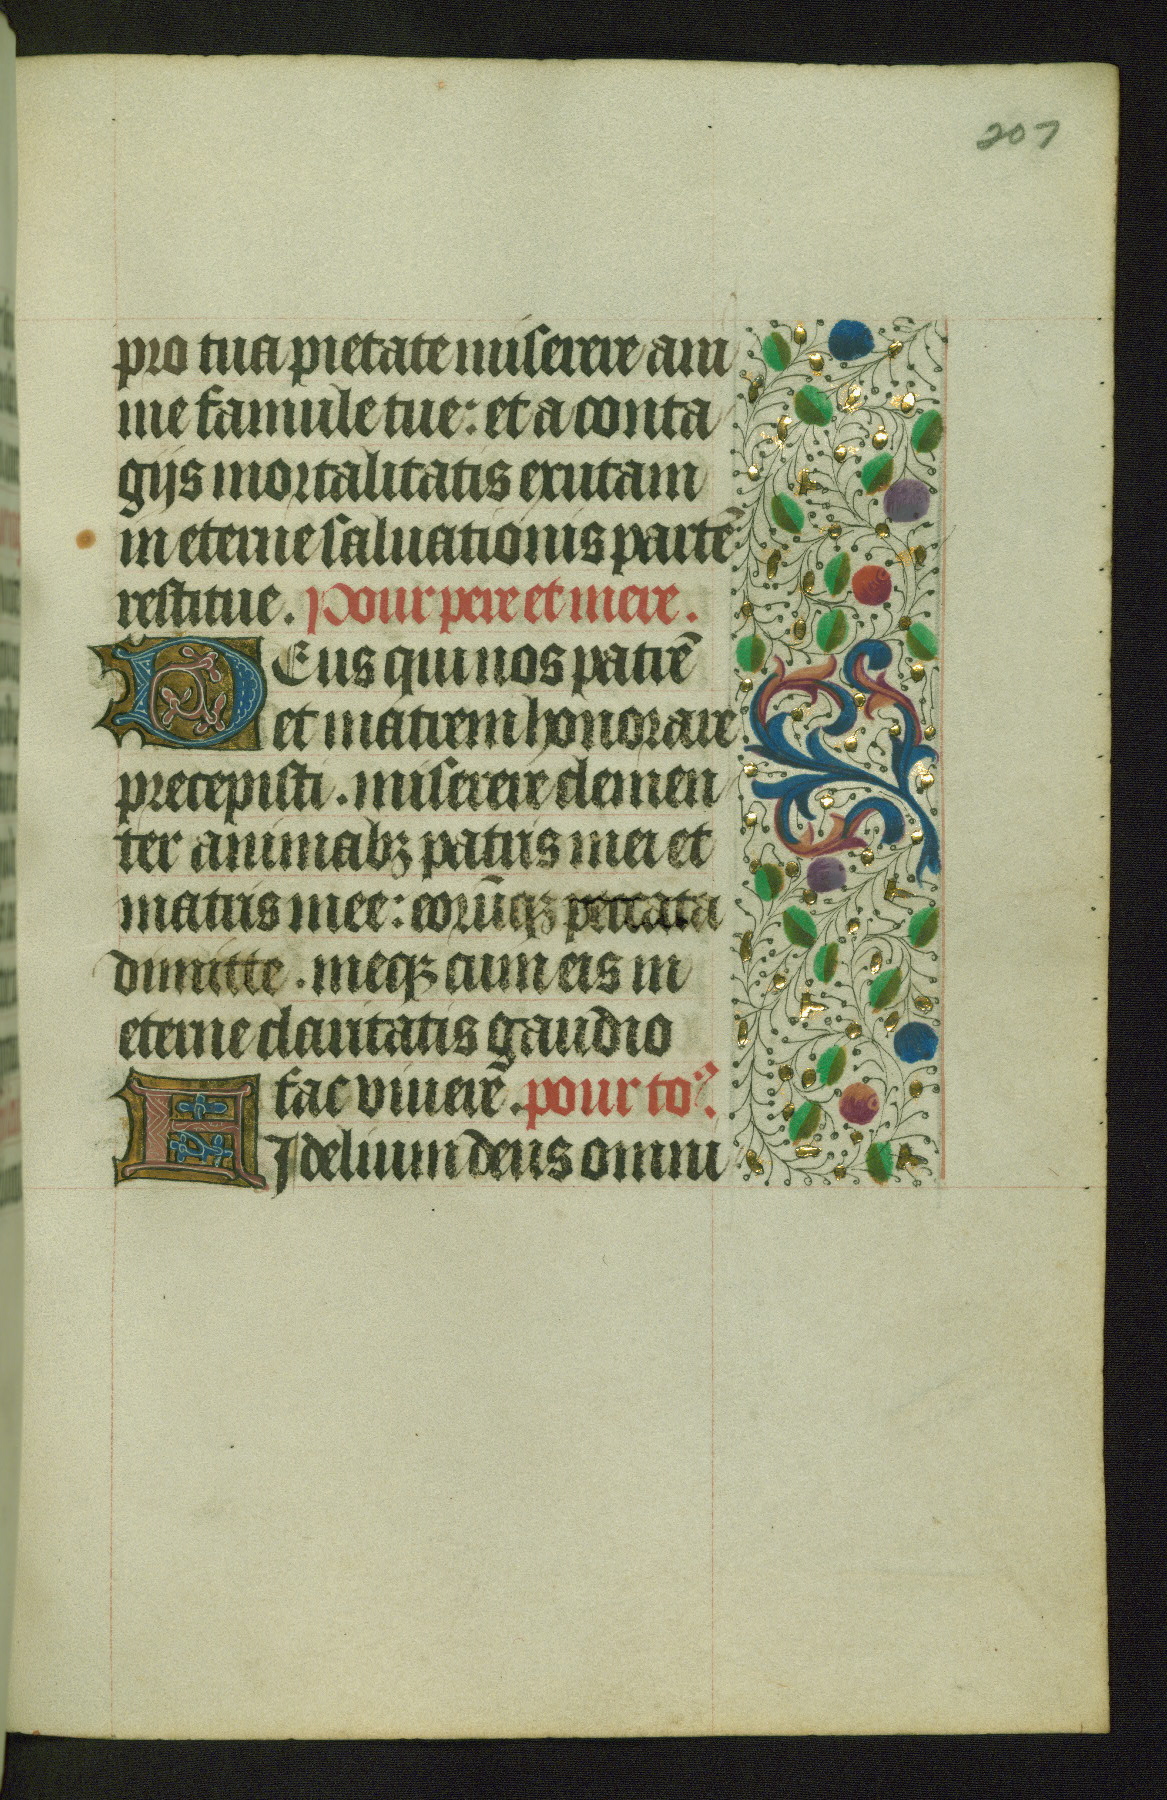 207
pro tua pietate miserere ani
me famule tue: et a conta
gijs mortalitatis exutam
in eterne saluationis partē
restitue. Pour pere et mere.
DEus qui nos patrē
et matrem honorare
precepisti. miserere clemen
ter animabꝫ patris mei et
matris mee: eorūqꝫ peccata
dimitte. meqꝫ cum eis in
eterne claritatis gaudio
fac viuere᷒. pour toꝰ.
FIdelium deus omni